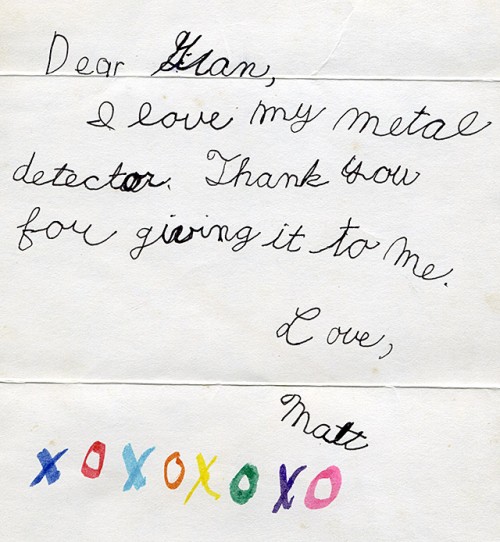 Dear Gran,
I love my metal
detector. Thank you
for giving it to me.
Love,
Matt
XOXOXOXO